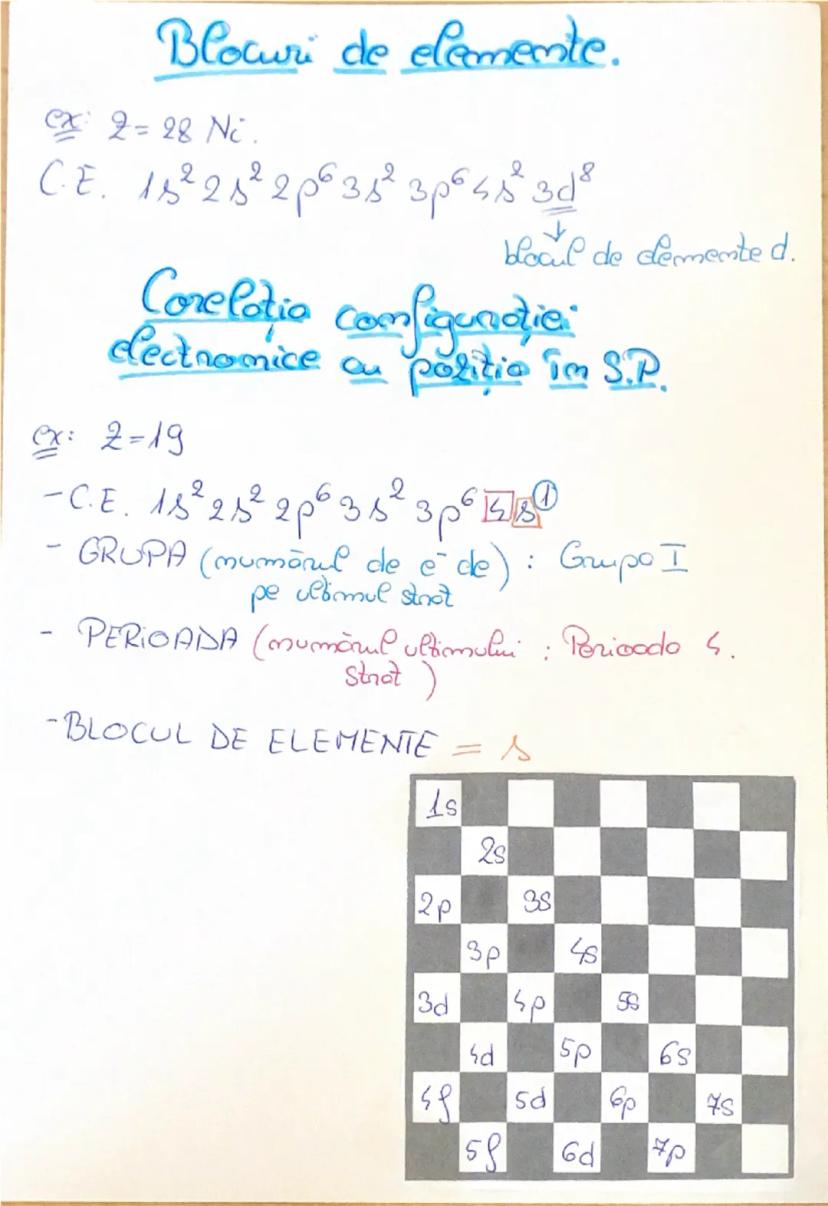 Blocuri de elemente.
ex: Z=28 Ni.
C.E. 1s² 2s² 2p⁶ 3s² 3p⁶ 4s² 3d⁸
↓
blocul de elemente d.
Corelația configurației
electronice cu poziția în S.P.
ex: Z=19
- C.E. 1s² 2s² 2p⁶ 3s² 3p⁶ 4s¹
- GRUPA (numărul de e⁻ de) : Grupa I
pe ultimul strat
- PERIOADA (numărul ultimului : Perioada 4.
strat)
- BLOCUL DE ELEMENTE = s
1s
2s
2p 3s
3p 4s
3d 4p 5s
4d 5p 6s
4f 5d 6p 7s
5f 6d 7p